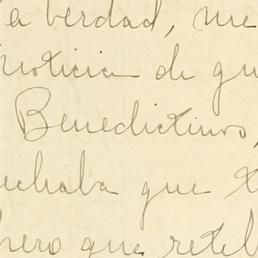 la verdad, me
noticia de qu
Benedictinos,
uchaba que t
pero que reteb